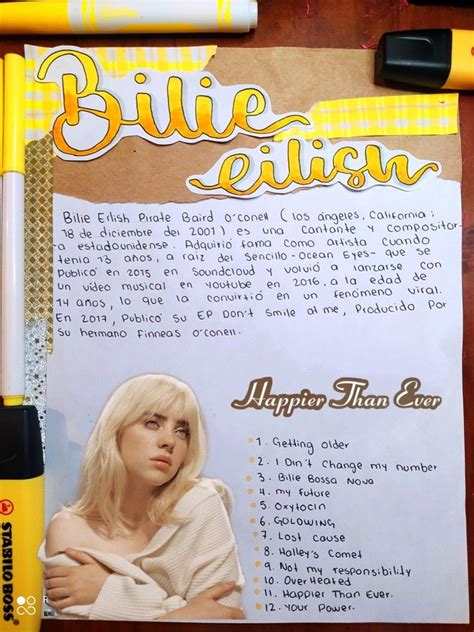 Bilie
eilish
Bilie Eilish Pirate Baird O'conell ( los ángeles, California ;
18 de diciembre del 2001) es una Cantante y compositor
-a estadounidense. Adquirió fama como artista cuando
tenía 13 años, a raiz del Sencillo -Ocean Eyes- que se
Publicó en 2015 en Soundcloud y volvió a lanzarse con
un video musical en youtube en 2016, a la edad de
14 años, lo que la convirtió en un fenómeno viral.
En 2017, Publicó su EP Don't Smile at me, Producido Por
su hermano Finneas O'Conell.
Happier Than Ever
1. Getting older
2. I Din't Change my number
3. Bilie Bossa Nova
4. my future
5. Oxytocin
6. GOLDWING
7. Lost cause
8. Halley's Comet
9. Not my responsibility
10. OverHeated
11. Happier Than Ever.
12. Your Power.
STABILO BOSS
R